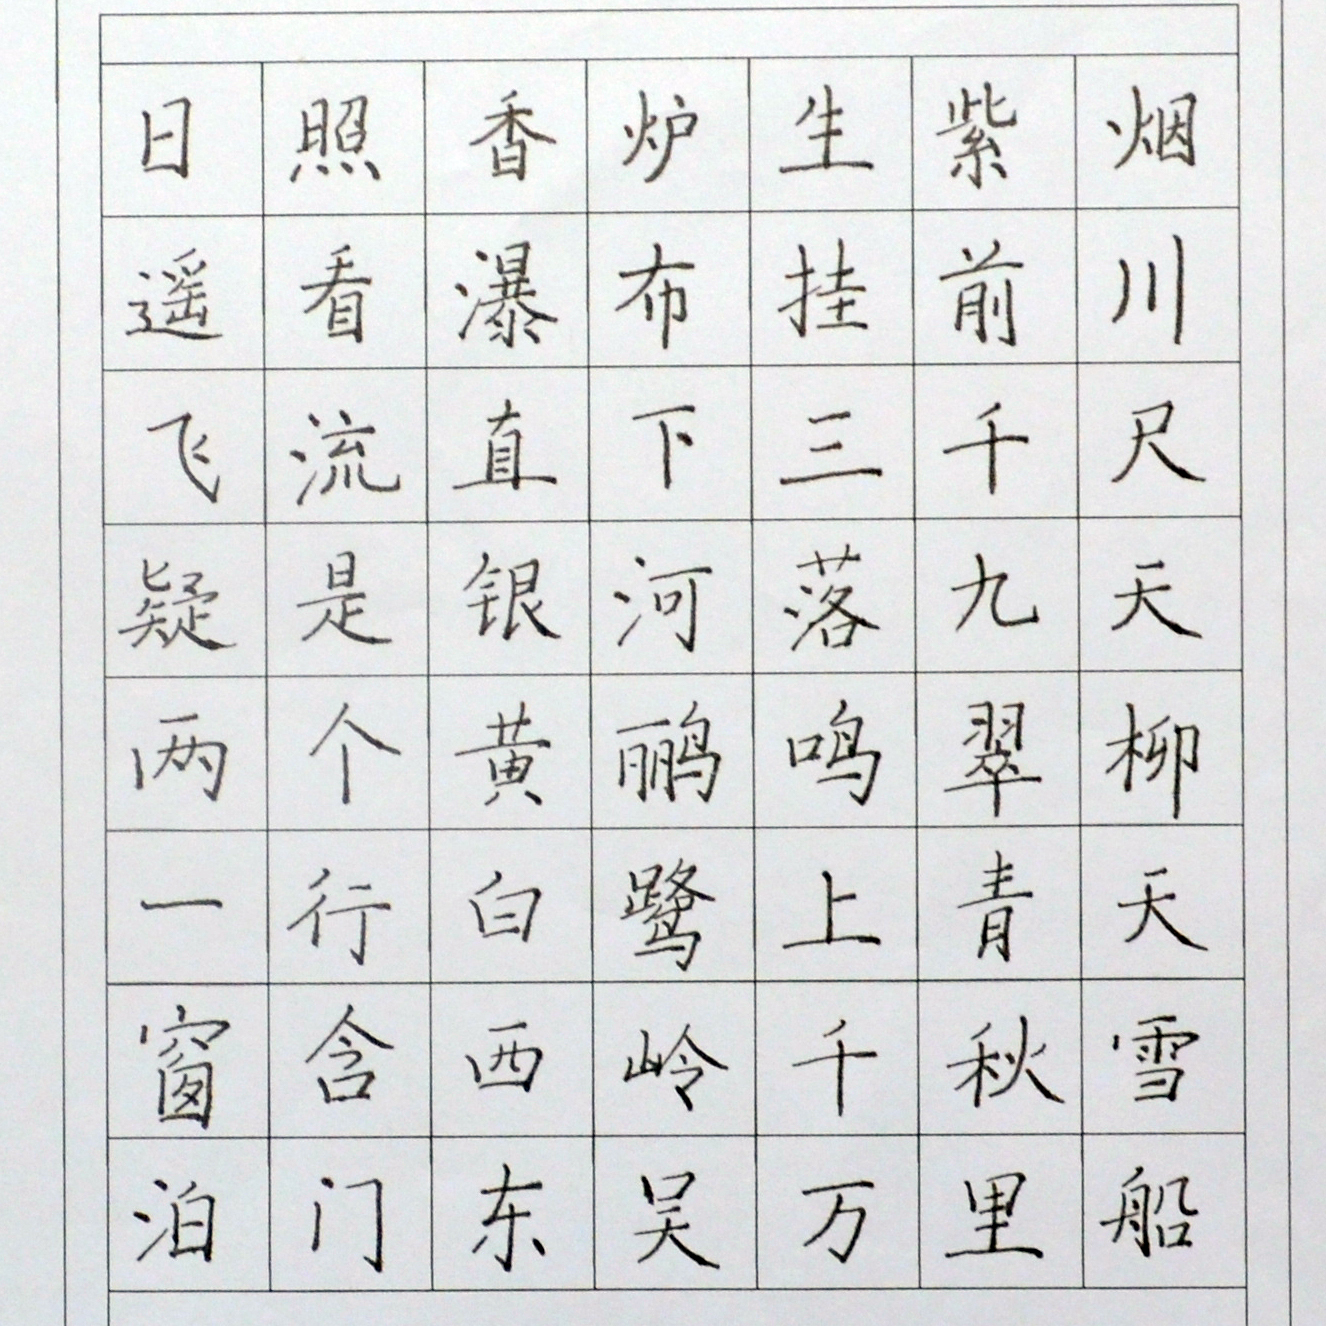 日照香炉生紫烟
遥看瀑布挂前川
飞流直下三千尺
疑是银河落九天
两个黄鹂鸣翠柳
一行白鹭上青天
窗含西岭千秋雪
泊门东吴万里船